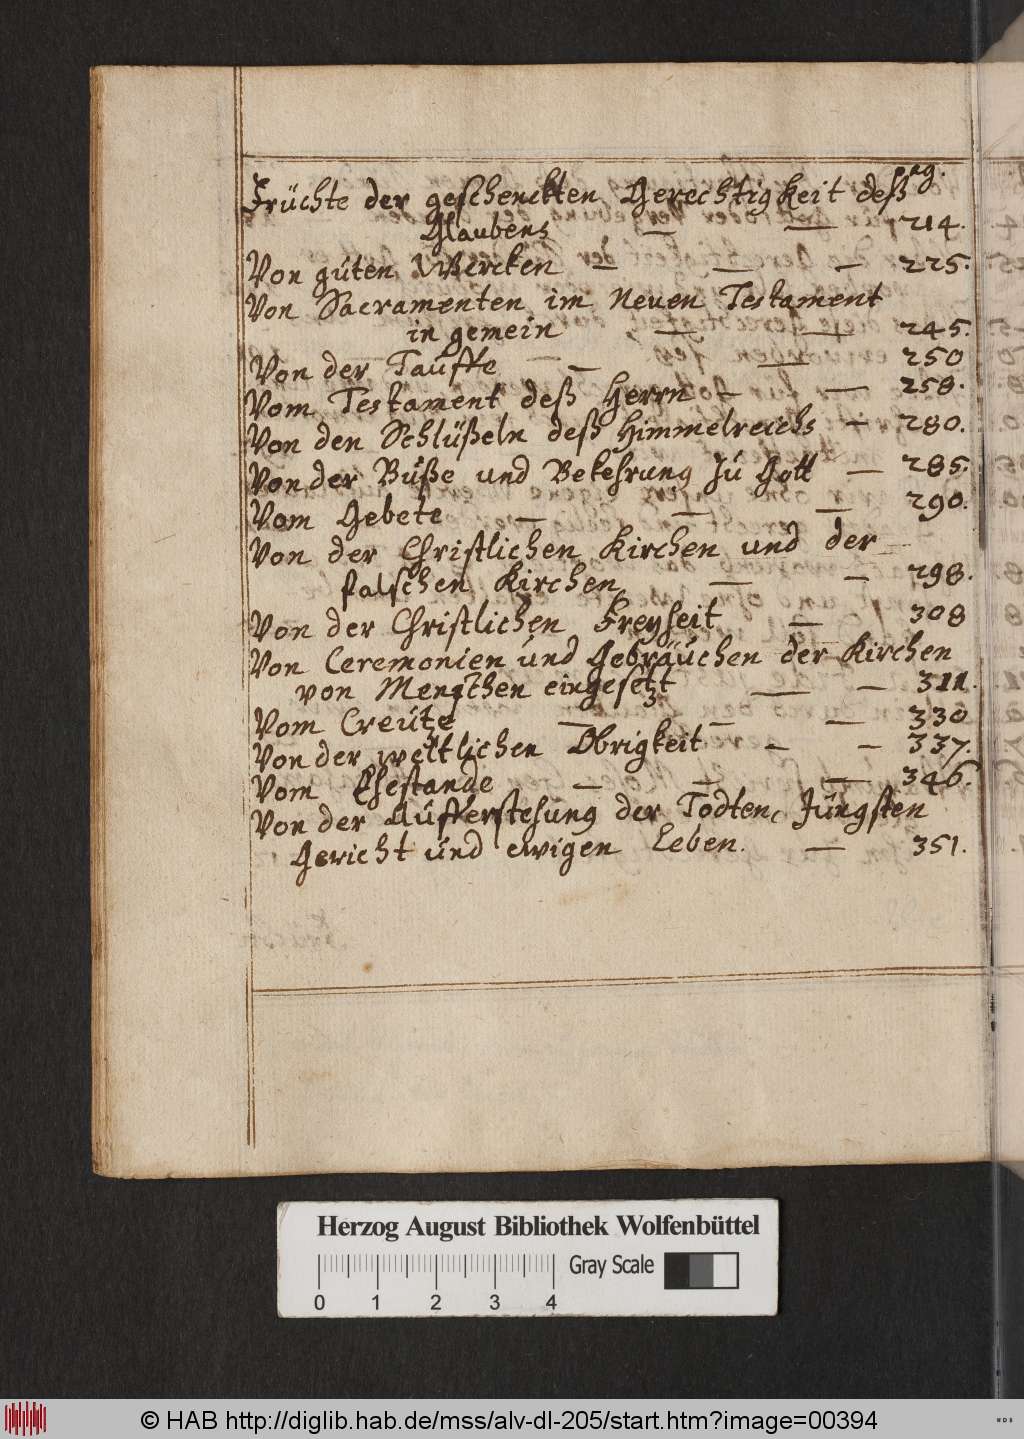 pag.
Früchte der geschenckten Gerechtigkeit deß
Glaubens — — 214.
Von guten Wercken — — — 225.
Von Sacramenten im Neuen Testament
in gemein — — 245.
Von der Tauffe — — 250
Vom Testament deß Herrn — — 258.
Von den Schlüßeln deß Himmelreichs — 280.
Von der Buße und Bekehrung zu Gott — 285.
Vom Gebete — — — 290.
Von der Christlichen Kirchen und der
falschen Kirchen — — 298.
Von der Christlichen Freyheit — 308
Von Ceremonien und Gebräuchen der Kirchen
von Menschen eingesetzt — — 311.
Vom Creutze — — — 330
Von der weltlichen Obrigkeit — — 337.
Vom Ehestande — — — 346.
Von der Aufferstehung der Todten, Jüngsten
Gericht und ewigen Leben. — 351.
Herzog August Bibliothek Wolfenbüttel
Gray Scale
0 1 2 3 4
© HAB http://diglib.hab.de/mss/alv-dl-205/start.htm?image=00394